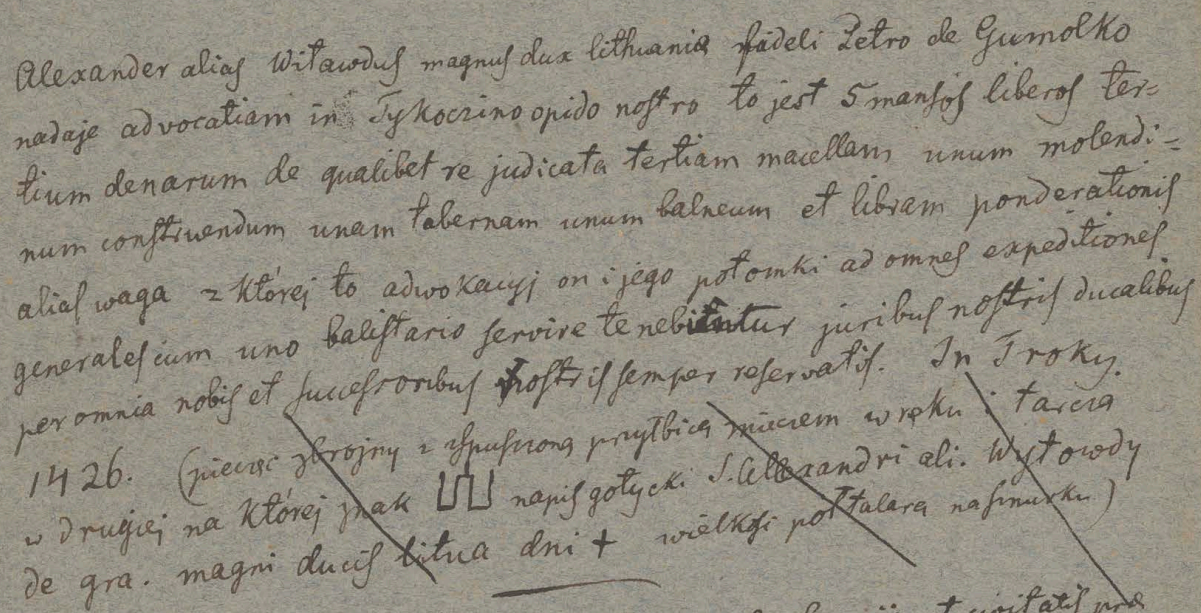 Alexander alias Witawdus magnus dux lithuanię fideli Petro de Gumolko
nadaje advocatiam in Tykoczino opido nostro to jest 5 mansos liberos ter=
tium denarum de qualibet re judicata tertiam macellam unum molendi=
num construendum unam tabernam unum balneum et libram ponderationis
alias waga z której to adwokacyj on i jego potomki ad omnes expeditiones
generales cum uno balistario servire tenebuntur juribus nostris ducalibus
per omnia nobis et successoribus nostris semper reservatis. In Troky.
1426. (pieczęć zbrojny z spuszczoną przyłbicą mieczem w ręku i tarczą
w drugiej na której znak napis gotycki S. Allexandri ali. Wytowdy
de gra. magni ducis litua dni + wielkości pół talara na sznurku)